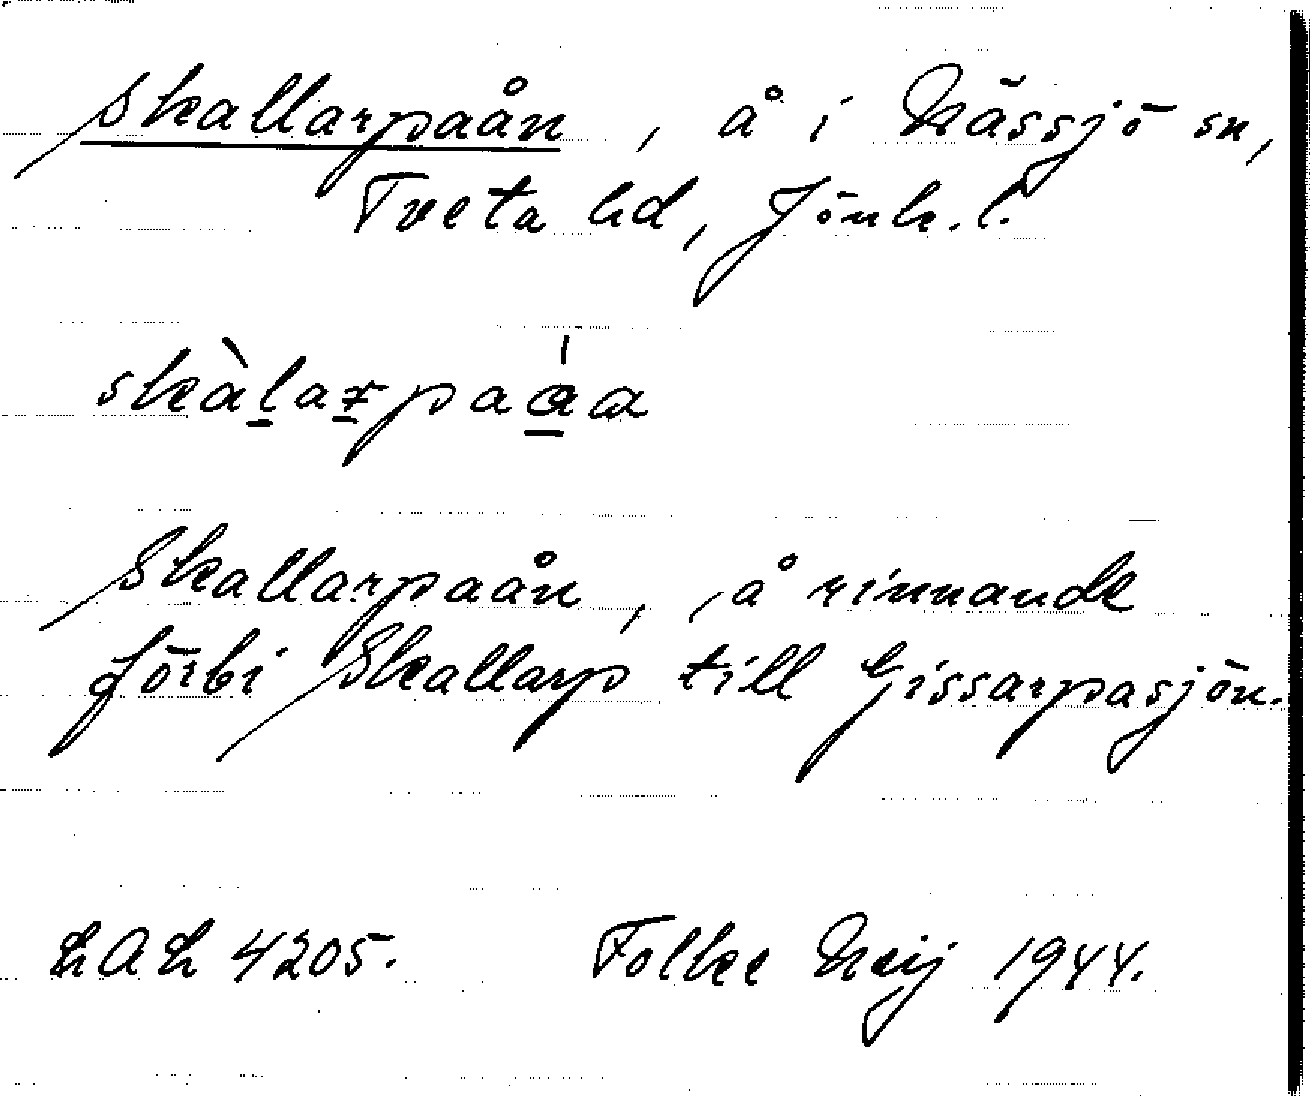 Skallarpaån, å i Nässjö sn,
Tveta hd, Jönk. l.
skàlarpaáa
Skallarpaån, å rinnande
förbi Skallarp till Gissarpasjön.
LAL 4205. Folke Neij 1944.